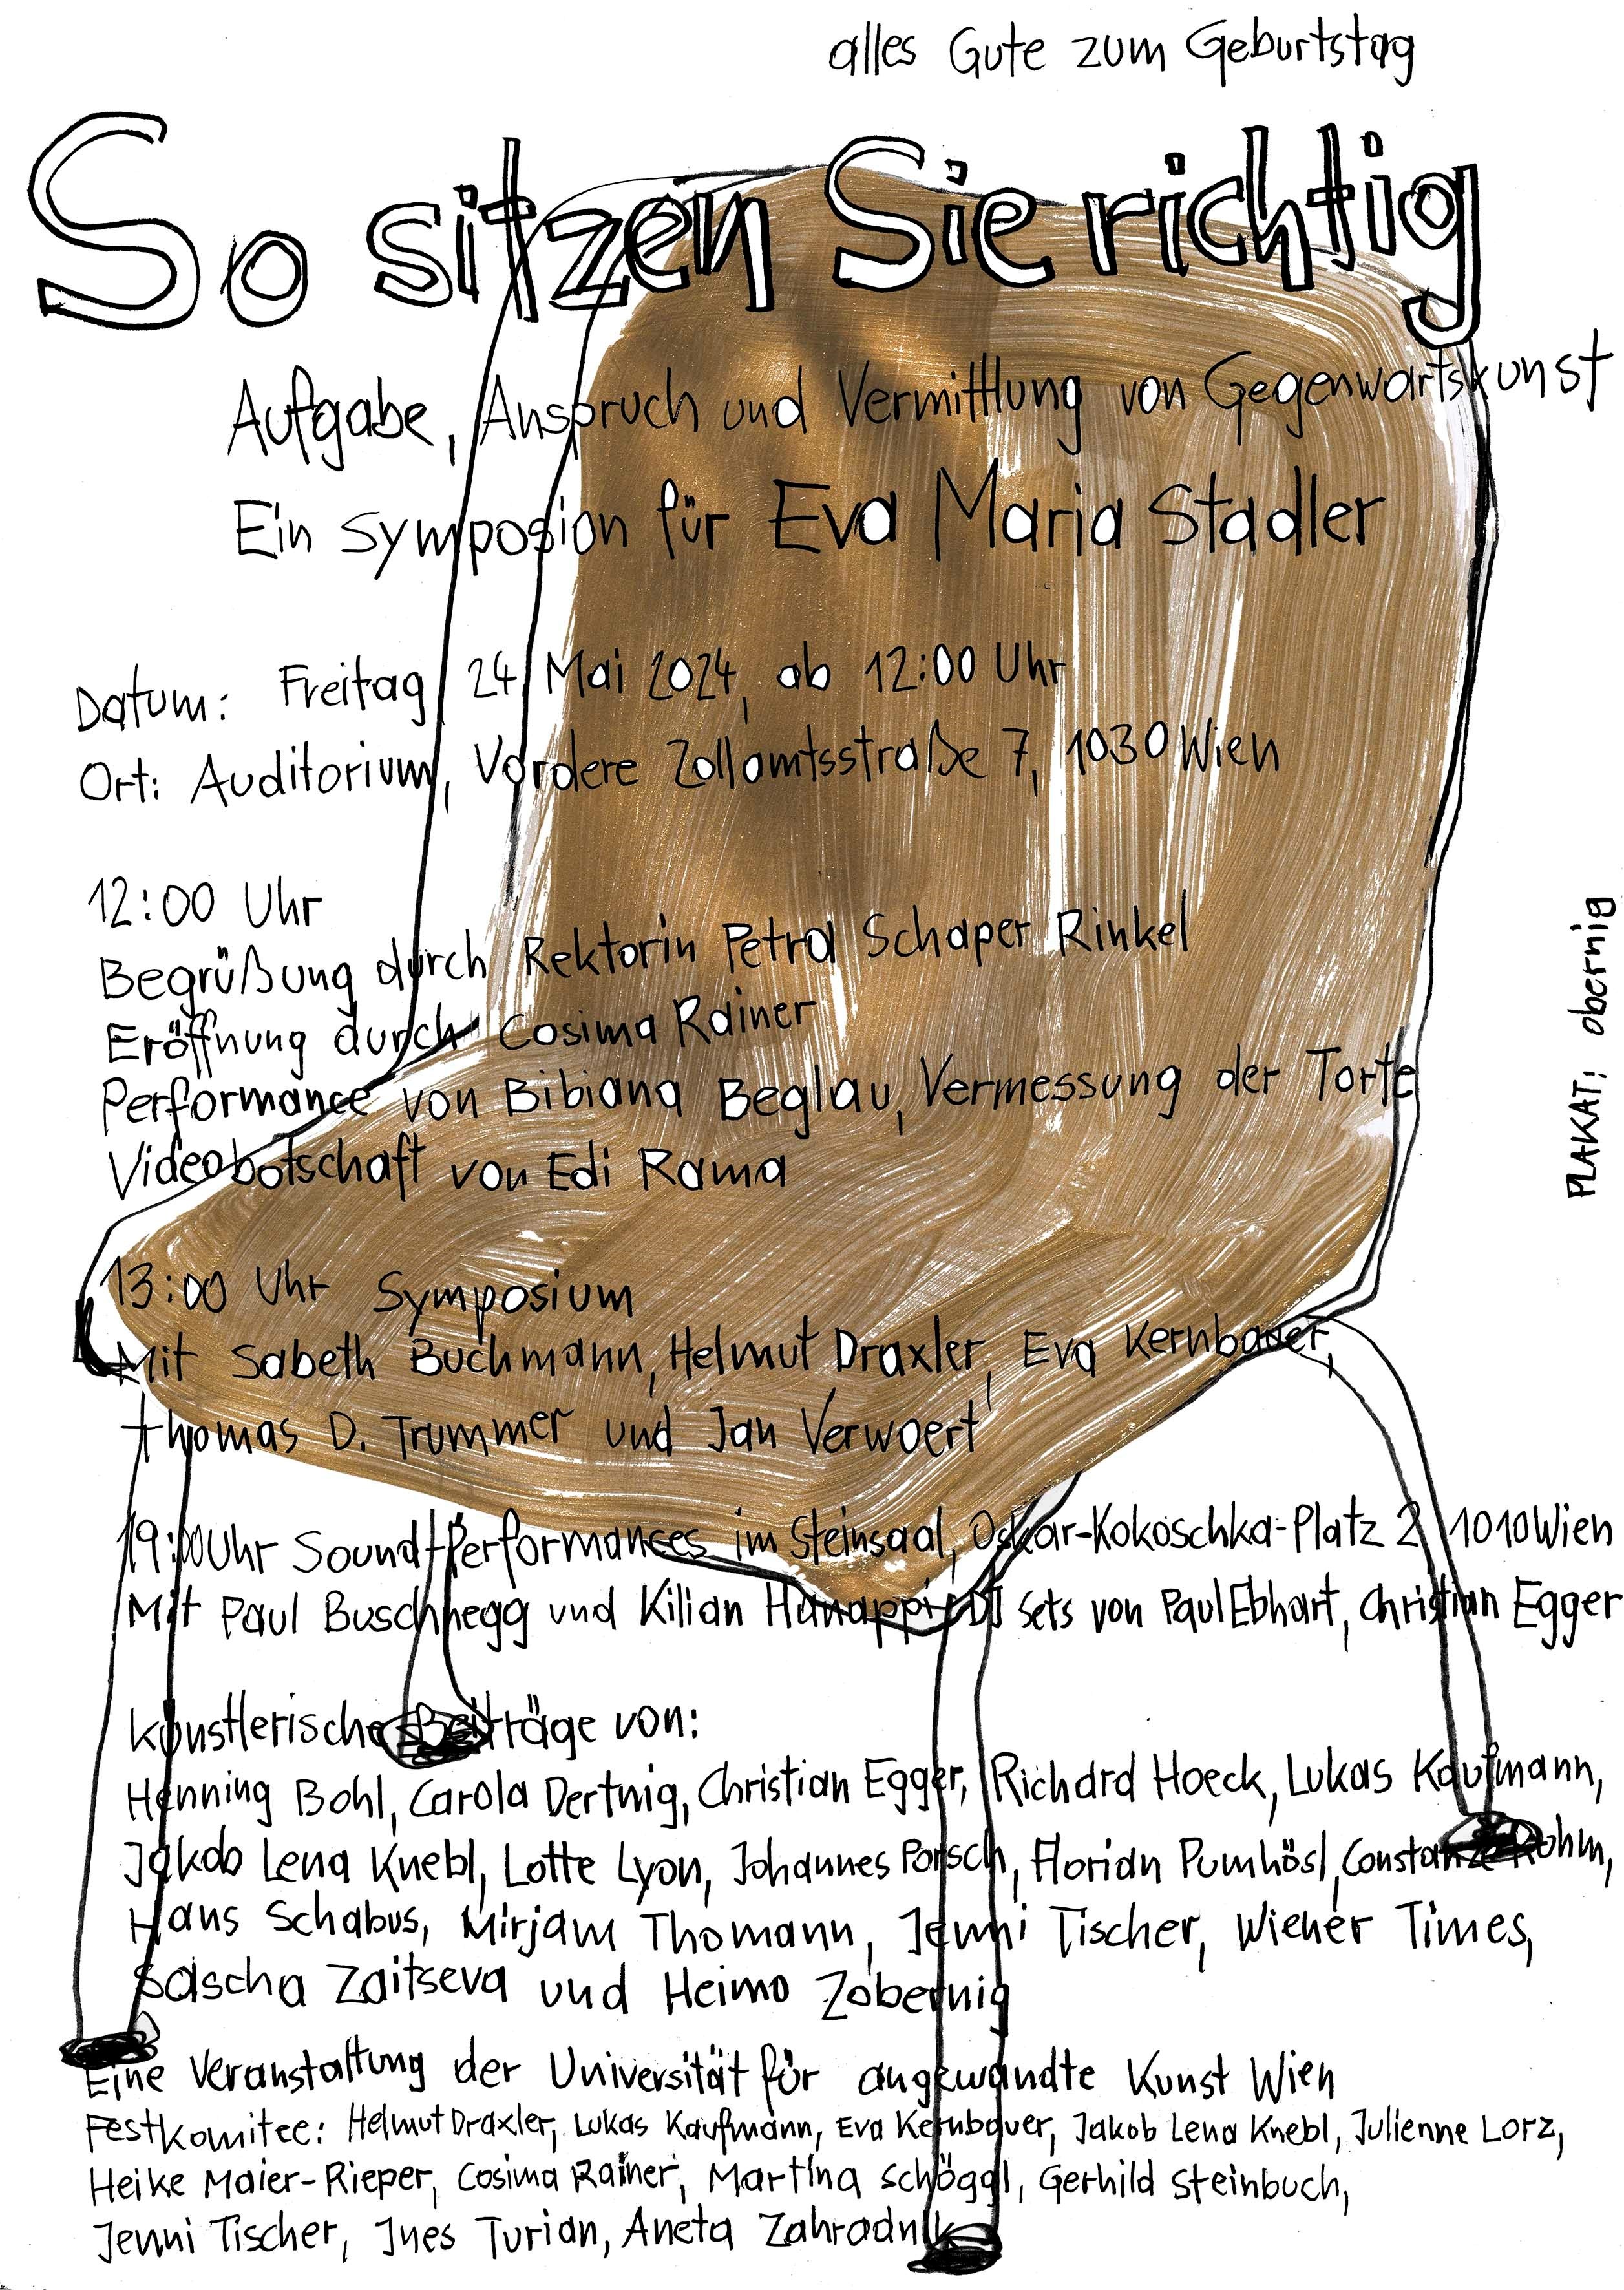 alles Gute zum Geburtstag
So sitzen Sie richtig
Aufgabe, Anspruch und Vermittlung von Gegenwartskunst
Ein Symposion für Eva Maria Stadler
Datum: Freitag, 24. Mai 2024, ab 12:00 Uhr
Ort: Auditorium, Vordere Zollamtsstraße 7, 1030 Wien
12:00 Uhr
Begrüßung durch Rektorin Petra Schaper Rinkel
Eröffnung durch Cosima Rainer
Performance von Bibiana Beglau, Vermessung der Torte
Videobotschaft von Edi Rama
13:00 Uhr Symposium
Mit Sabeth Buchmann, Helmut Draxler, Eva Kernbauer,
Thomas D. Trummer und Jan Verwoert
19:00 Uhr Sound-Performances im Steinsaal, Oskar-Kokoschka-Platz 2, 1010 Wien
Mit Paul Buschnegg und Kilian Hanappi, DJ sets von Paul Ebhart, Christian Egger
Künstlerische Beiträge von:
Henning Bohl, Carola Dertnig, Christian Egger, Richard Hoeck, Lukas Kaufmann,
Jakob Lena Knebl, Lotte Lyon, Johannes Porsch, Florian Pumhösl, Constanze Ruhm,
Hans Schabus, Mirjam Thomann, Jenni Tischer, Wiener Times,
Sascha Zaitseva und Heimo Zobernig
Eine Veranstaltung der Universität für angewandte Kunst Wien
Festkomitee: Helmut Draxler, Lukas Kaufmann, Eva Kernbauer, Jakob Lena Knebl, Julienne Lorz,
Heike Maier-Rieper, Cosima Rainer, Martina Schöggl, Gerhild Steinbuch,
Jenni Tischer, Ines Turian, Aneta Zahradnik
PLAKAT: obernig